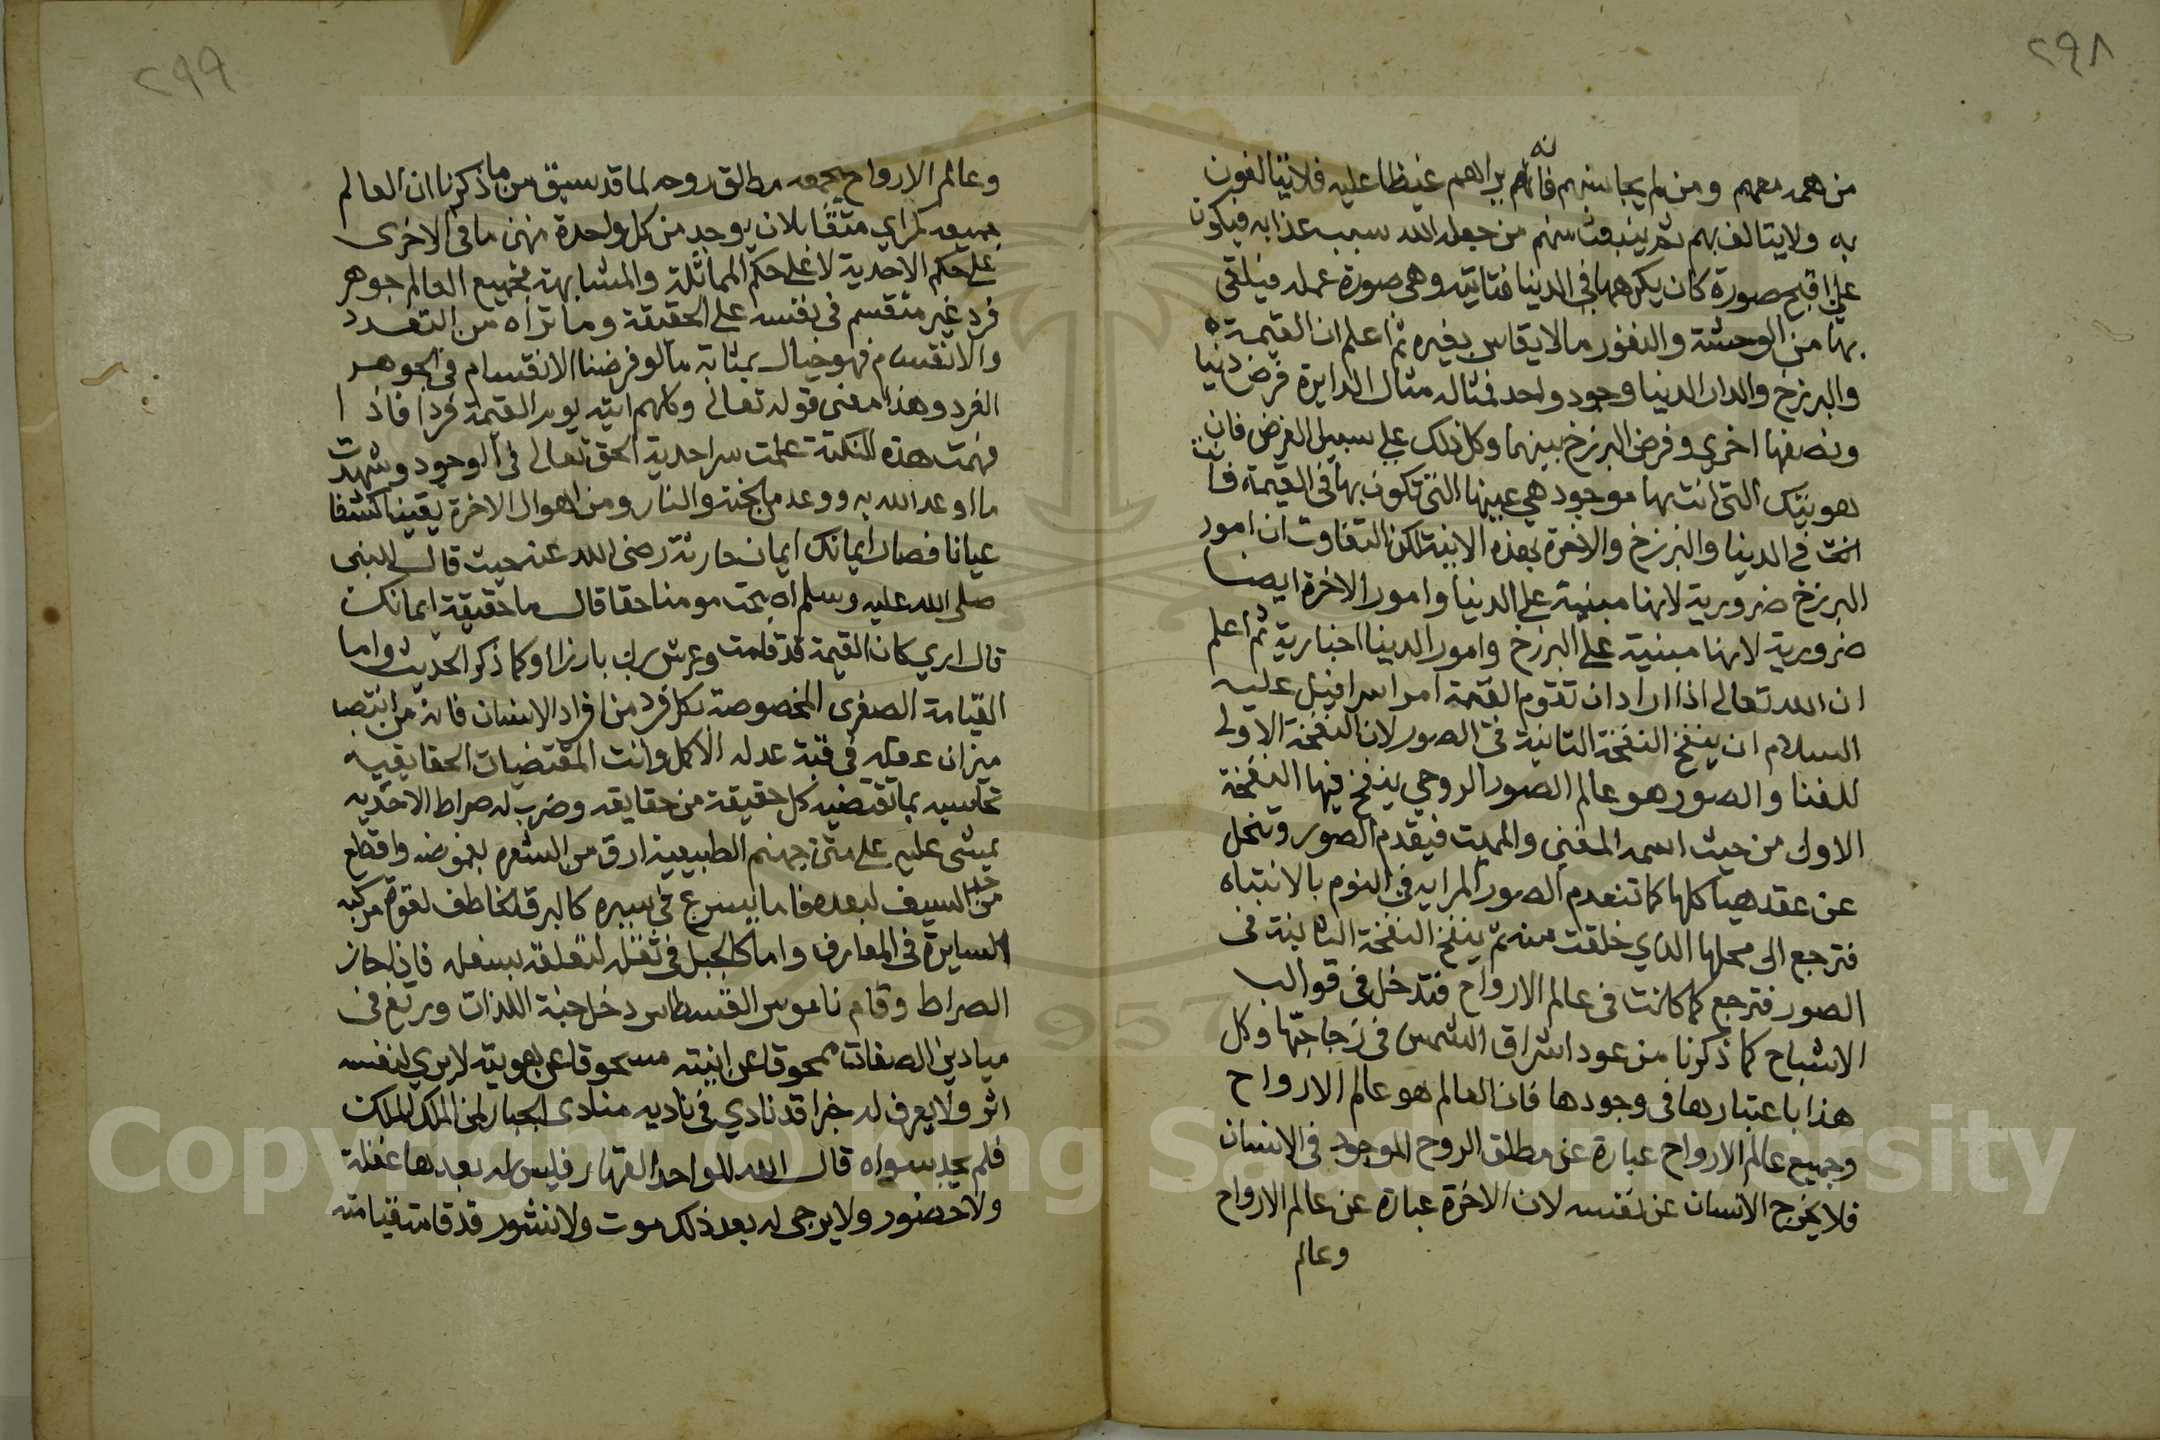 ٢٩٨
من همه معهم ومن لم يجانسهم فانه يراهم غيظا عليه فلا يتالفون
به ولا يتالف بهم ثم ينبعث منهم من جعله الله سبب عذابه فيكون
على اقبح صورة كان يكرهها في الدنيا فتاتيه وهي صورة عمله فيلقى
بها من الوحشة والنفور مالا يقاس بغيره ثم اعلم ان القيمة
والبرزخ والدار الدنيا وجود واحد فمثاله مثال الدايرة فرض دنيا
ونصفها اخرى وفرض البرزخ بينهما وكل ذلك على سبيل الفرض فان
هويتك التي انت بها موجود هي عينها التي تكون بها في القيمة فانت
انت في الدنيا والبرزخ والاخرة بهذه الانية لكن التفاوت ان امور
البرزخ ضرورية لانها مبنية على الدنيا وامور الاخرة ايضا
ضرورية لانها مبنية على البرزخ وامور الدنيا اختيارية ثم اعلم
ان الله تعالى اذا اراد ان تقوم القيمة امر اسرافيل عليه
السلام ان ينفخ النفخة الثانية في الصور لان النفخة الاولى
للفنا والصور هو عالم الصور الروحي ينفخ فيها النفخة
الاول من حيث اسمه المفني والمميت فيقدم الصور وتنحل
عن عقد هياكلها كما تنعدم الصور المرايه في النوم بالانتباه
فترجع الى محلها الذي خلقت منه ثم ينفخ النفخة الثانية في
الصور فترجع كما كانت في عالم الارواح فتدخل في قوالب
الاشباح كما ذكرنا من عود اشراق الشمس في زجاجتها وكل
هذا باعتبارها في وجودها فان العالم هو عالم الارواح
وجميع عالم الارواح عبارة عن مطلق الروح الموجود في الانسان
فلا يخرج الانسان عن نفسه لان الاخرة عبارة عن عالم الارواح
وعالم
٢٩٩
وعالم الارواح بجمعه مطالق روحه لما قد سبق من ما ذكرنا ان العالم
جميعه كمراي متقابلان يوجد من كل واحدة منهن ما في الاخرى
على حكم الاحدية لا على حكم المماثلة والمشابهة فجميع العالم جوهر
فرد غير منقسم في نفسه على الحقيقة وما تراه من التعدد
والانقسام فهو خيال بمثابة ما لو فرضنا الانقسام في الجوهر
الفرد وهذا معنى قوله تعالى وكلهم اتيه يوم القيمة فردا فاذا
فهمت هذه النكتة علمت سر احدية الحق تعالى في الوجود وشهدت
ما اوعد الله به ووعد من الجنة والنار ومن اهوال الاخرة يقينا كشفا
عيانا فصار ايمانك ايمان حارثة رضي الله عنه حيث قال للنبي
صلى الله عليه وسلم اصبحت مومنا حقا قال ما حقيقة ايمانك
قال اري كان القيمة قد قامت وعرش ربك بارزا او كما ذكر الحديث واما
القيامة الصغرى المخصوصة بكل فرد من افراد الانسان فانه من انتصا
ميزان عقله في قبة عدله الاكمل وانت المقتضيات الحقايقيه
تحاسبه بما تقتضيه كل حقيقة من حقايقه وضرب له صراط الاحديه
يمشى عليه على متن جهنم الطبيعية ادق من الشعره بغموضه واقطع
من حد السيف لبعده فاما يسرع في سيره كالبرق الخاطف لقوة مركبه
السايرة في المعارف واما كالجبل في ثقله لتعلقه بسفله فاذا جاز
الصراط وقام ناموس القسطاس دخل جنة اللذات ورتع في
ميادين الصفات ممحوقا عن انيته مسحوقا عن هويته لا يرى لنفسه
اثر ولا يعرف له خبرا قد نادي في ناديه منادى الجبار لمن الملك
فلم يجد سواه قال الله للواحد القهار فليس له بعدها غفلة
ولا حضور ولا يرجى له بعد ذلك موت ولا نشور قد قامت قيامته
Copyright © King Saud University
1957